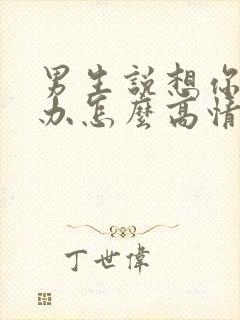 男生說想你
办怎麼高情
丁世偉